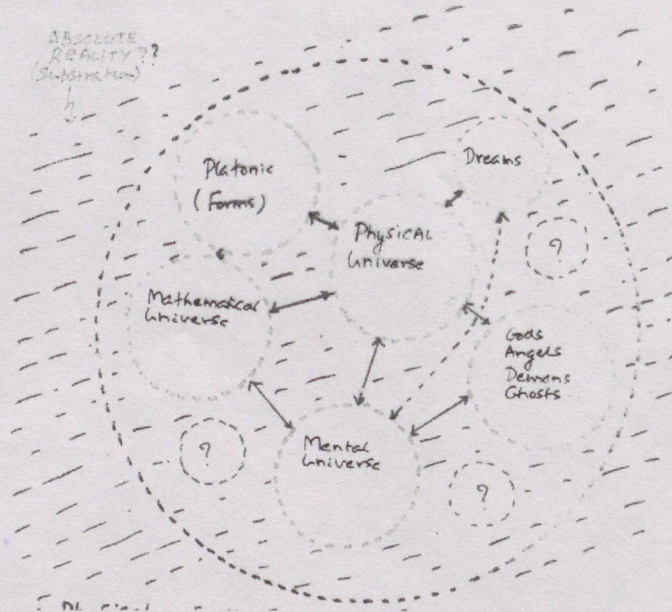 ABSOLUTE
REALITY ??
(Substratum)
Platonic
(Forms)
Dreams
PhysicAL
Universe
?
Mathematical
Universe
Gods
Angels
Demons
Ghosts
Mental
Universe
?
?